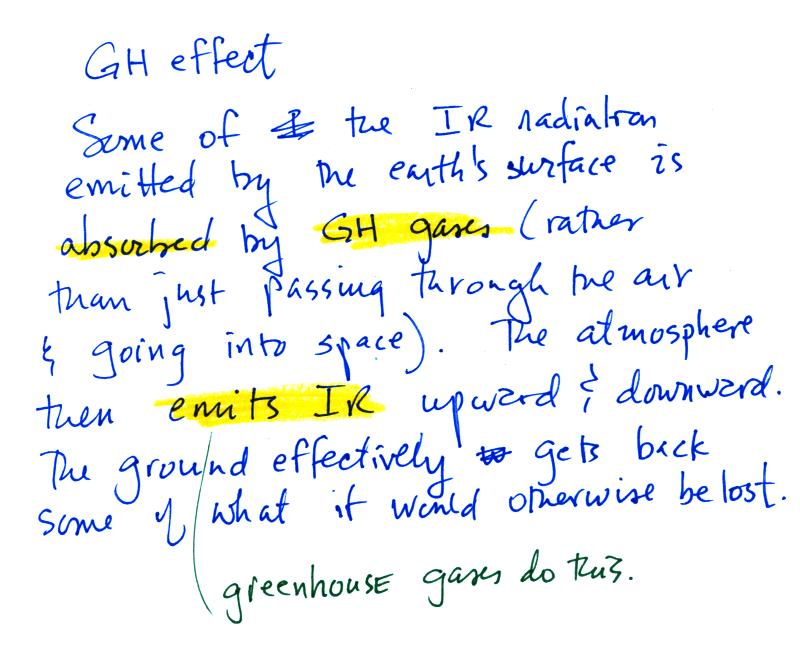 GH effect
Some of the IR radiation
emitted by the earth's surface is
absorbed by GH gases (rather
than just passing through the air
& going into space). The atmosphere
then emits IR upward & downward.
The ground effectively gets back
some of what it would otherwise be lost.
greenhouse gases do this.